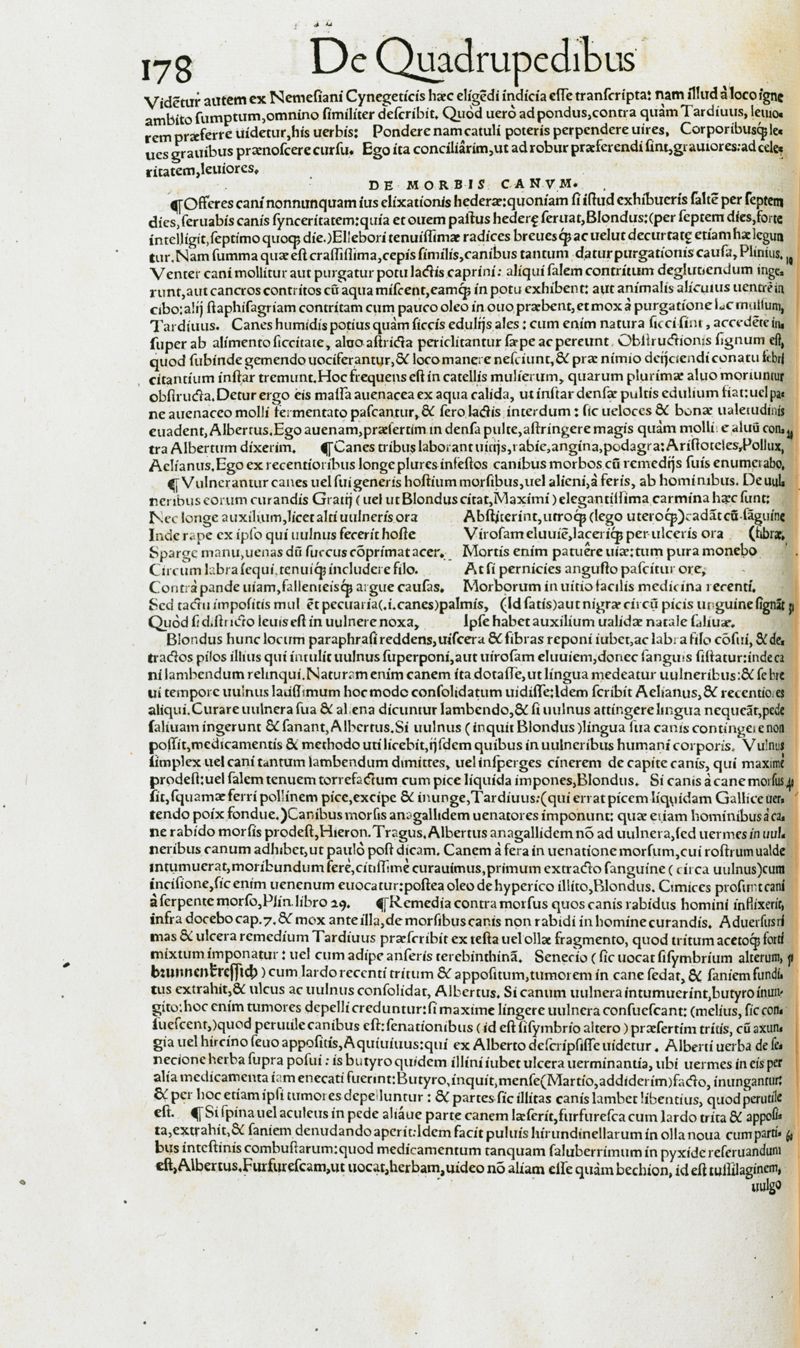 178 De Quadrupedibus
Vidẽtur autem ex Nemesiani Cynegeticis hæc eligẽdi indicia esse transcripta: nam illud à loco igne
ambito sumptum, omnino similiter describit. Quòd uerò ad pondus, contra quàm Tardiuus, leuio-
rem præferre uidetur, his uerbis: Pondere nam catuli poteris perpendere uires, Corporibusq́; le-
ues grauibus prænoscere cursu. Ego ita conciliârim, ut ad robur præferendi sint, grauiores: ad cele-
ritatem, leuiores.
DE MORBIS CANVM.
¶ Offeres cani nonnunquam ius elixationis hederæ: quoniam si istud exhibueris saltẽ per septem
dies, seruabis canis synceritatem: quia et ouem pastus hederę seruat, Blondus: (per septem dies, forte
intelligit, septimo quoq; die.) Ellebori tenuissimæ radices breuesq́; ac uelut decurtatę etiam hæ legun
tur. Nam summa quæ est crassissima, cepis similis, canibus tantum datur purgationis causa, Plinius. 10
Venter cani mollitur aut purgatur potu lactis caprini: aliqui salem contritum deglutiendum inge-
runt, aut cancros contritos cũ aqua miscent, eamq́; in potu exhibent: aut animalis alicuius uentrẽ in
cibo: alij staphisagriam contritam cum pauco oleo in ouo præbent, et mox à purgatione lac mulsum,
Tardiuus. Canes humidis potius quàm siccis edulijs ales: cum enim natura sicci sint, accedẽte in-
super ab alimento siccitate, aluo astricta periclitantur sæpe ac pereunt. Obstructionis signum est,
quod subinde gemendo uociferantur, & loco manere nesciunt, & præ nimio deijciendi conatu febri
citantium instar tremunt. Hoc frequens est in catellis mulierum, quarum plurimæ aluo moriuntur
obstructa. Detur ergo eis massa auenacea ex aqua calida, ut instar densæ pultis edulium fiat: uel pa-
ne auenaceo molli fermentato pascantur, & sero lactis interdum: sic ueloces & bonæ ualetudinis
euadent, Albertus. Ego auenam, præsertim in densa pulte, astringere magis quàm mollire aluũ con- 20
tra Albertum dixerim. ¶ Canes tribus laborant uitijs, rabie, angina, podagra: Aristoteles, Pollux,
Aelianus. Ego ex recentioribus longe plures infestos canibus morbos cũ remedijs suis enumerabo.
¶ Vulnerantur canes uel sui generis hostium morsibus, uel alieni, à feris, ab hominibus. De uul-
neribus eorum curandis Gratij (uel ut Blondus citat, Maximi) elegantissima carmina hæc sunt:
Nec longe auxilium, licet alti uulneris ora Abstiterint, utroq́; (lego uteroq́;) cadãt cũ sãguine
Inde rape ex ipso qui uulnus fecerit hoste Virosam eluuiẽ, laceriq́; per ulceris ora (fibræ,
Sparge manu, uenas dũ succus cõprimat acer. Mortis enim patuêre uiæ: tum pura monebo
Circum labra sequi, tenuiq́; includere filo. At si pernicies angusto pascitur ore,
Contrà pande uiam, fallenteisq́; argue causas. Morborum in uitio facilis medicina recenti.
Sed tactu impositis mulcẽt pecuaria (.i. canes) palmis, (Id satis) aut nigræ circũ picis unguine signãt 30
Quòd si districto leuis est in uulnere noxa, Ipse habet auxilium ualidæ natale saliuæ.
Blondus hunc locum paraphrasi reddens, uiscera & fibras reponi iubet, ac labra filo cõsui, & de-
tractos pilos illius qui intulit uulnus superponi, aut uirosam eluuiem, donec sanguis sistatur: inde ca
ni lambendum relinqui. Naturam enim canem ita dotasse, ut lingua medeatur uulneribus: & se bre
ui tempore uulnus latissimum hoc modo consolidatum uidisse: Idem scribit Aelianus, & recentiores
aliqui. Curare uulnera sua & aliena dicuntur lambendo, & si uulnus attingere lingua nequeãt, pede
saliuam ingerunt & sanant, Albertus. Si uulnus (inquit Blondus) lingua sua canis contingere non
possit, medicamentis & methodo uti licebit, ijsdem quibus in uulneribus humani corporis. Vulnus
simplex uel cani tantum lambendum dimittes, uel insperges cinerem de capite canis, qui maximè
prodest: uel salem tenuem torrefactum cum pice liquida impones, Blondus. Si canis à cane morsus 40
sit, squamæ ferri pollinem pice, excipe & inunge, Tardiuus: (qui errat picem liquidam Gallice uer-
tendo poix fondue.) Canibus morsis anagallidem uenatores imponunt: quæ etiam hominibus à ca-
ne rabido morsis prodest, Hieron. Tragus. Albertus anagallidem nõ ad uulnera, sed uermes in uul-
neribus canum adhibet, ut paulò post dicam. Canem à fera in uenatione morsum, cui rostrum ualde
intumuerat, moribundum ferè, citissimè curauimus, primum extracto sanguine (circa uulnus) cum
incisione, sic enim uenenum euocatur: postea oleo de hyperico illito, Blondus. Cimices prosunt cani
à serpente morso, Plin. libro 29. ¶ Remedia contra morsus quos canis rabidus homini inflixerit,
infra docebo cap. 7. & mox ante illa, de morsibus canis non rabidi in homine curandis. Aduersus ri
mas & ulcera remedium Tardiuus præscribit ex testa uel ollæ fragmento, quod tritum acetoq́; forti
mixtum imponatur: uel cum adipe anseris terebinthinã. Senecio (sic uocat sisymbrium alterum, 50
brunnenkressich) cum lardo recenti tritum & appositum, tumorem in cane sedat, & saniem fundi-
tus extrahit, & ulcus ac uulnus consolidat, Albertus. Si canum uulnera intumuerint, butyro inun-
gito: hoc enim tumores depelli creduntur: si maxime lingere uulnera consuescant: (melius, sic con-
suescent,) quod perutile canibus est: senationibus (id est sisymbrio altero) præsertim tritis, cũ axun-
gia uel hircino seuo appositis, Aquiuiuus: qui ex Alberto descripsisse uidetur. Alberti uerba de se-
necione herba supra posui: is butyro quidem illini iubet ulcera uerminantia, ubi uermes in eis per
alia medicamenta iam enecati fuerint: Butyro, inquit, mense (Martio, addiderim) facto, inungantur:
& per hoc etiam ipsi tumores depelluntur: & partes sic illitas canis lambet libentius, quod perutile
est. ¶ Si spina uel aculeus in pede aliáue parte canem læserit, furfuresca cum lardo trita & apposi-
ta, extrahit, & saniem denudando aperit: Idem facit puluis hirundinellarum in olla noua cum parti- 60
bus intestinis combustarum: quod medicamentum tanquam saluberrimum in pyxide reseruandum
est, Albertus. Furfurescam, ut uocat, herbam, uideo nõ aliam esse quàm bechion, id est tussilaginem,
uulgo